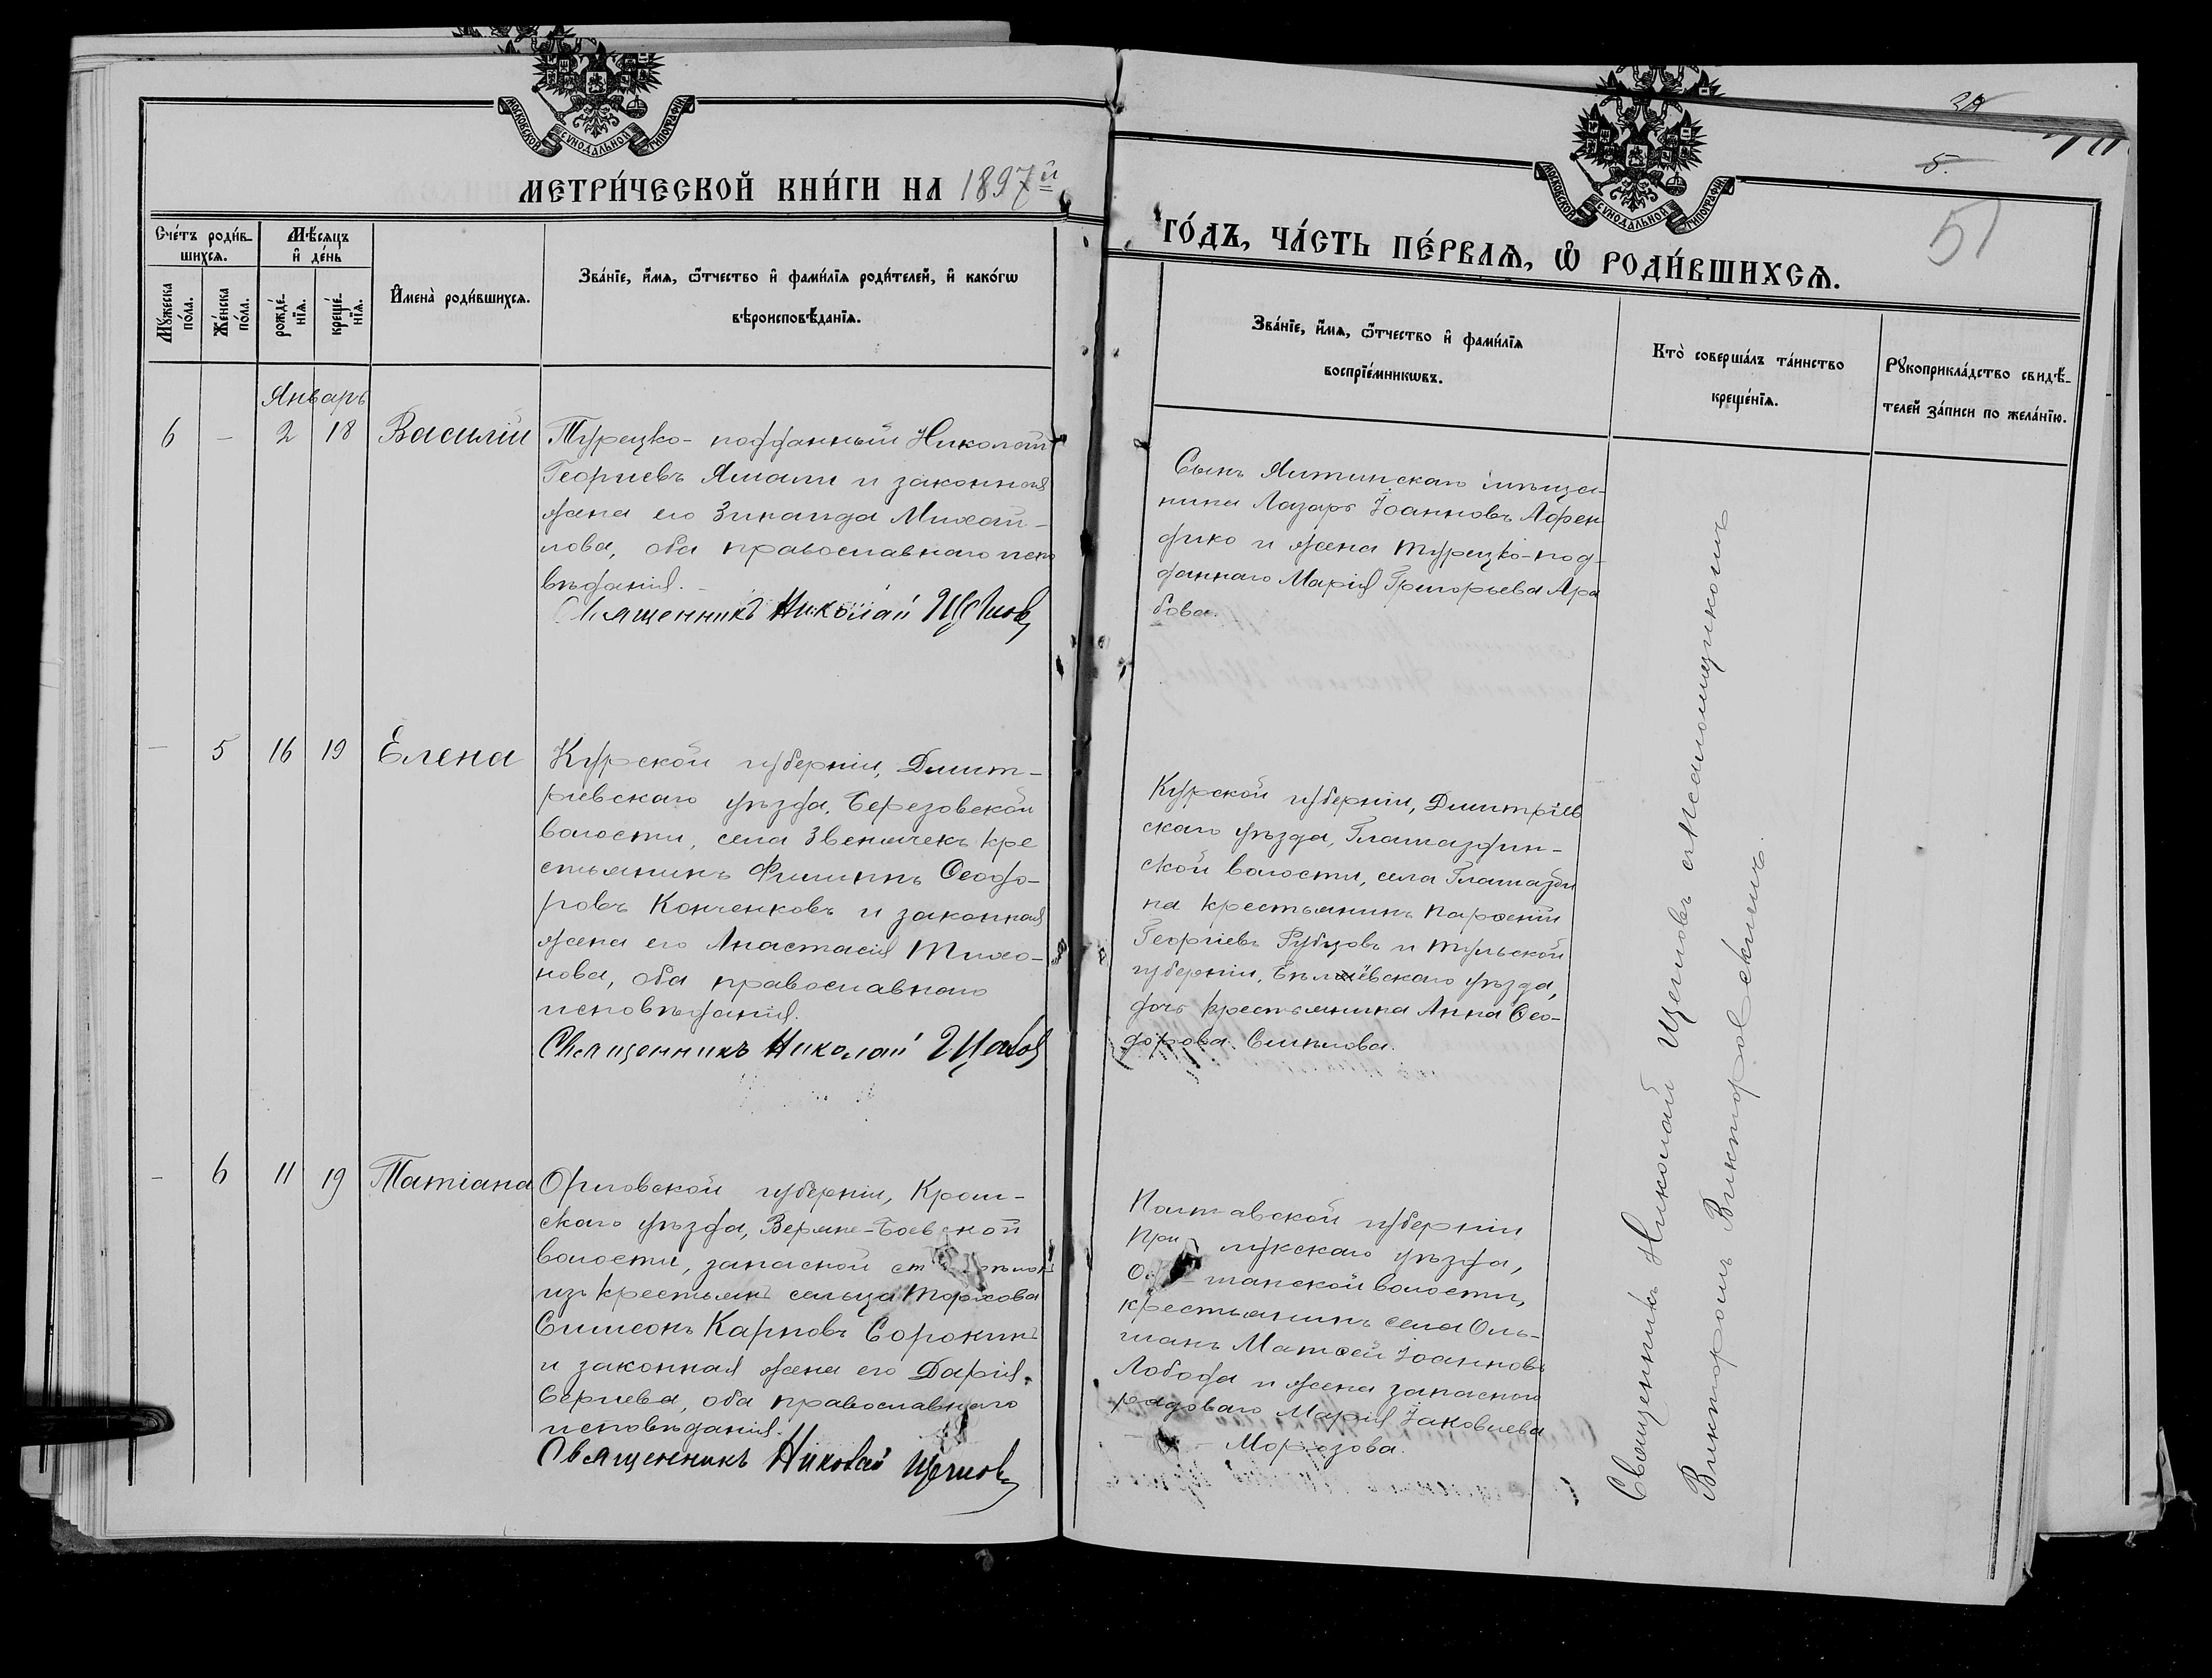 МОСКОВСКОЙ СУНОДАЛЬНОЙ ТИПОГРАФІИ
МЕТРИ́ЧЕСКОЙ КНИ́ГИ НА 1897й
Сче́тъ роди́в-
шихсѧ.
Мѣ́сѧцъ
и҆ де́нь
Мꙋ́жеска
по́ла.
Же́нска
по́ла.
рожде́-
нїѧ.
креще́-
нїѧ.
И҆мена̀ роди́вшихсѧ.
Зва́нїе, и҆́мѧ, ѻ҆́тчество и҆ фами́лїѧ роди́телей, и҆ како́гѡ
вѣроисповѣ́данїѧ.
Январь
6 - 2 18 Василій
Турецко-подданный Николай
Георгіевъ Ямали и законная
жена его Зинаида Михай-
лова, оба православнаго испо
вѣданія.
Священникъ Николай Щегловъ
- 5 16 19 Елена
Курской губерніи, Дмит-
ріевскаго уѣзда, Березовской
волости, села Звенячекъ кре
стьянинъ Филиппъ Ѳеодо-
ровъ Конченковъ и законная
жена его Анастасія Тихо-
нова, оба православнаго
исповѣданія.
Священникъ Николай Щегловъ
- 6 11 19 Татіана
Орловской губерніи, Кром-
скаго уѣзда, Верхне-Боевской
волости, запасной
изъ крестьянъ сельца Торхова
Симеонъ Карповъ Сорокинъ
и законная жена его Дарія
Сергіева, оба православнаго
исповѣданія.
Священникъ Николай Щегловъ
МОСКОВСКОЙ СУНОДАЛЬНОЙ ТИПОГРАФІИ
5.
51
ГО́ДЪ, ЧА́СТЬ ПЕ́РВАѦ, Ѡ҆ РОДИ́ВШИХСѦ.
Зва́нїе, и҆́мѧ, ѻ҆́тчество и҆ фами́лїѧ
воспрїе́мникѡвъ.
Кто̀ соверша́лъ та́инство
креще́нїѧ.
Рꙋкоприкла́дство свидѣ́-
телей за́писи по жела́нїю.
Сынъ Ялтинскаго мѣща-
нина Лазарь Іоанновъ Афен
дико и жена турецко-под-
даннаго Марія Григорьева Ара
бова.
Курской губерніи, Дмитріев
скаго уѣзда, Гламаздин-
ской волости, села Гламазди
на крестьянинъ Парѳеній
Георгіевъ Рубцовъ и Тульской
губерніи, Бѣлёвскаго уѣзда,
дочь крестьянина Анна Ѳео-
дорова
Полтавской губерніи
При лукскаго уѣзда,
шанской волости,
крестьянинъ села Оль-
шанъ Матѳей Іоанновъ
Лобода и жена запаснаго
рядоваго Марія Іаковлева
Морозова.
Священникъ Николай Щегловъ съ псаломщикомъ
Викторомъ Викторовскимъ.